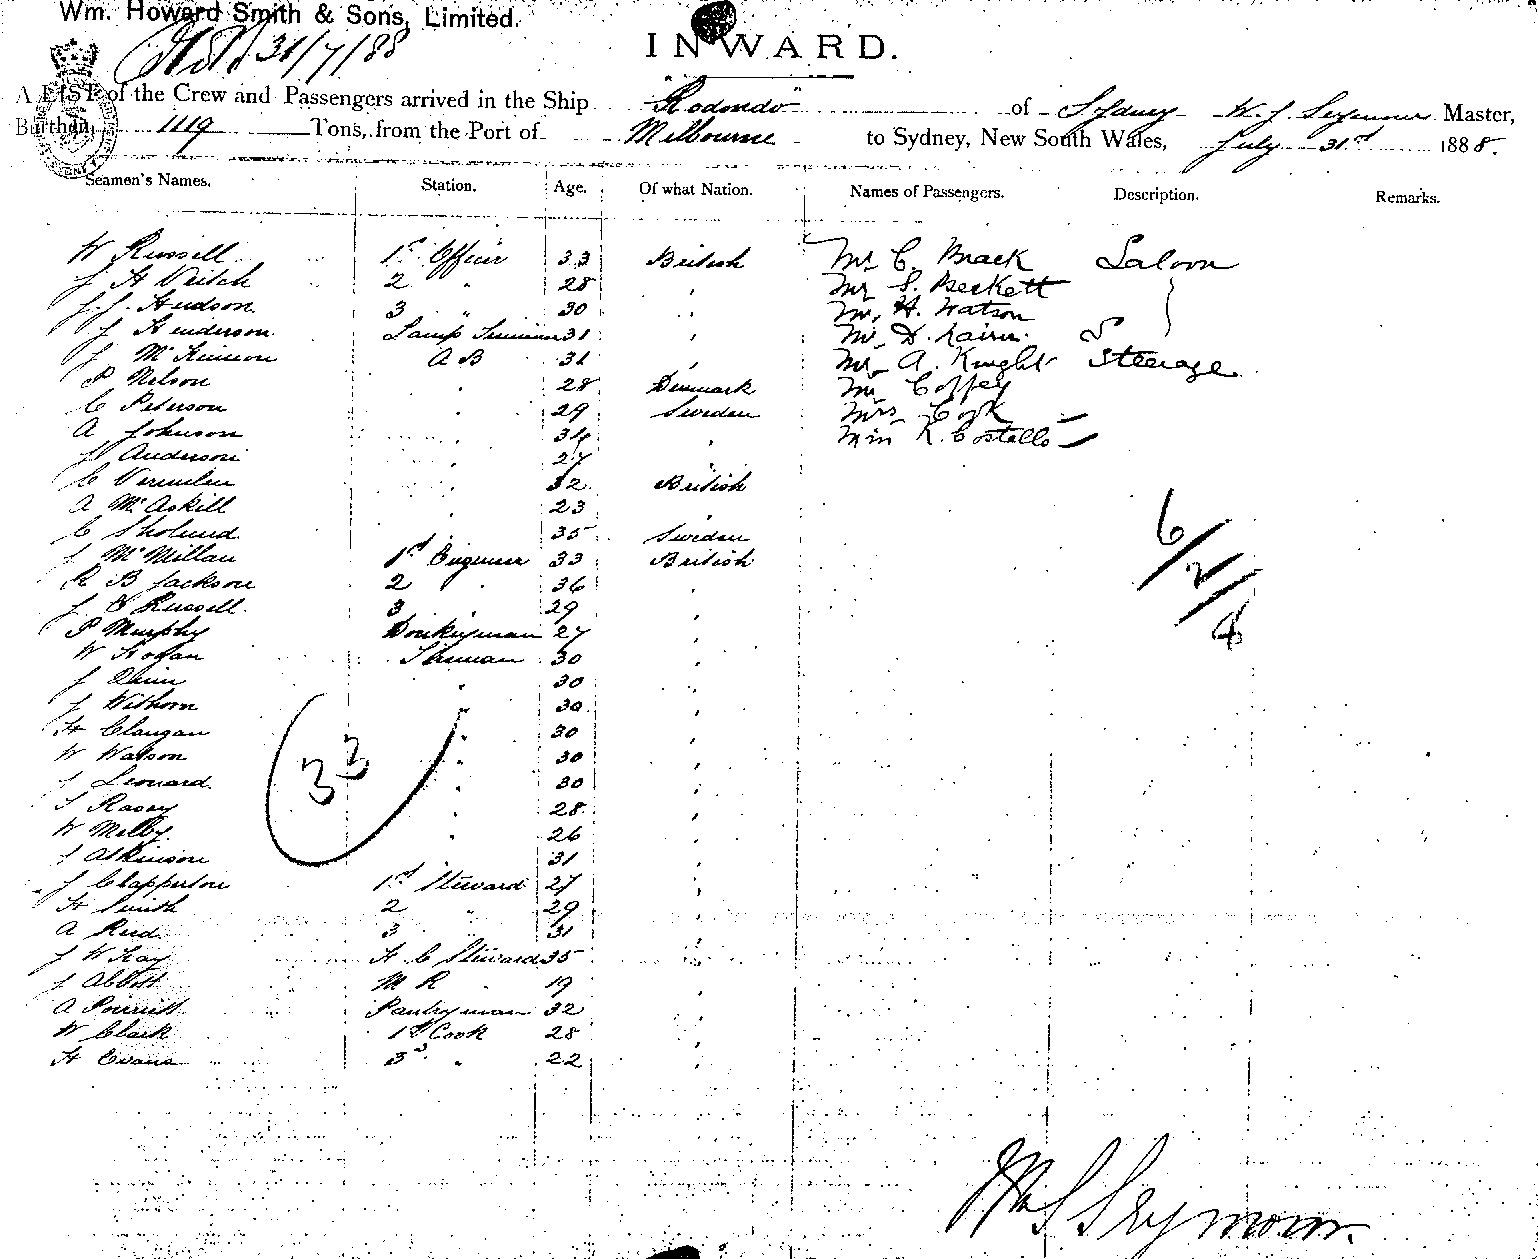 Wm. Howard Smith & Sons, Limited.
31/7/88
INWARD.
A LIST of the Crew and Passengers arrived in the Ship Rodondo of Sydney W. J. Seymour Master,
Burthen 1119 Tons, from the Port of Melbourne to Sydney, New South Wales, July 31st 1888.
Seamen's Names. Station. Age. Of what Nation. Names of Passengers. Description. Remarks.
W Russell 1st Officer 33 British Mr C. Brack Saloon
J H Veitch 2 " 28 " Mr S. Beckett
J. J. Hudson 3 " 30 " Mr H. Watson
J Henderson Lamp Trimmer 31 " Mr D. Nairn
J McKinnon A B 31 " Mr A. Knight Steerage
P Nelson " 28 Denmark Mr Coffey
C Peterson " 29 Sweden Mrs Cook
A Johnson " 34 " Miss K. Costello
J Anderson " 27 "
C Vermilen " 32 British
A McAskill " 23 "
C Sholund " 35 Sweden
J McMillan 1st Engineer 33 British
R B Jackson 2 " 36 "
J E Russell 3 " 29 "
P Murphy Donkeyman 27 "
W Hogan Fireman 30 "
J Quinn " 30 "
J Withorn " 30 "
H Clangan " 30 "
W Watson " 30 "
J Leonard " 30 "
T Rasey " 28 "
W Melby " 26 "
J Atkinson " 31 "
J Clapperton 1st Steward 27 "
H Smith 2 " 29 "
A Reid 3 " 31 "
J W Kay F C Steward 35 "
J Abbott M R " 19 "
A Perritt Pantryman 32 "
W Clark 1st Cook 28 "
H Evans 3rd " 22 "
33
6/2/4
Wm J Seymour.